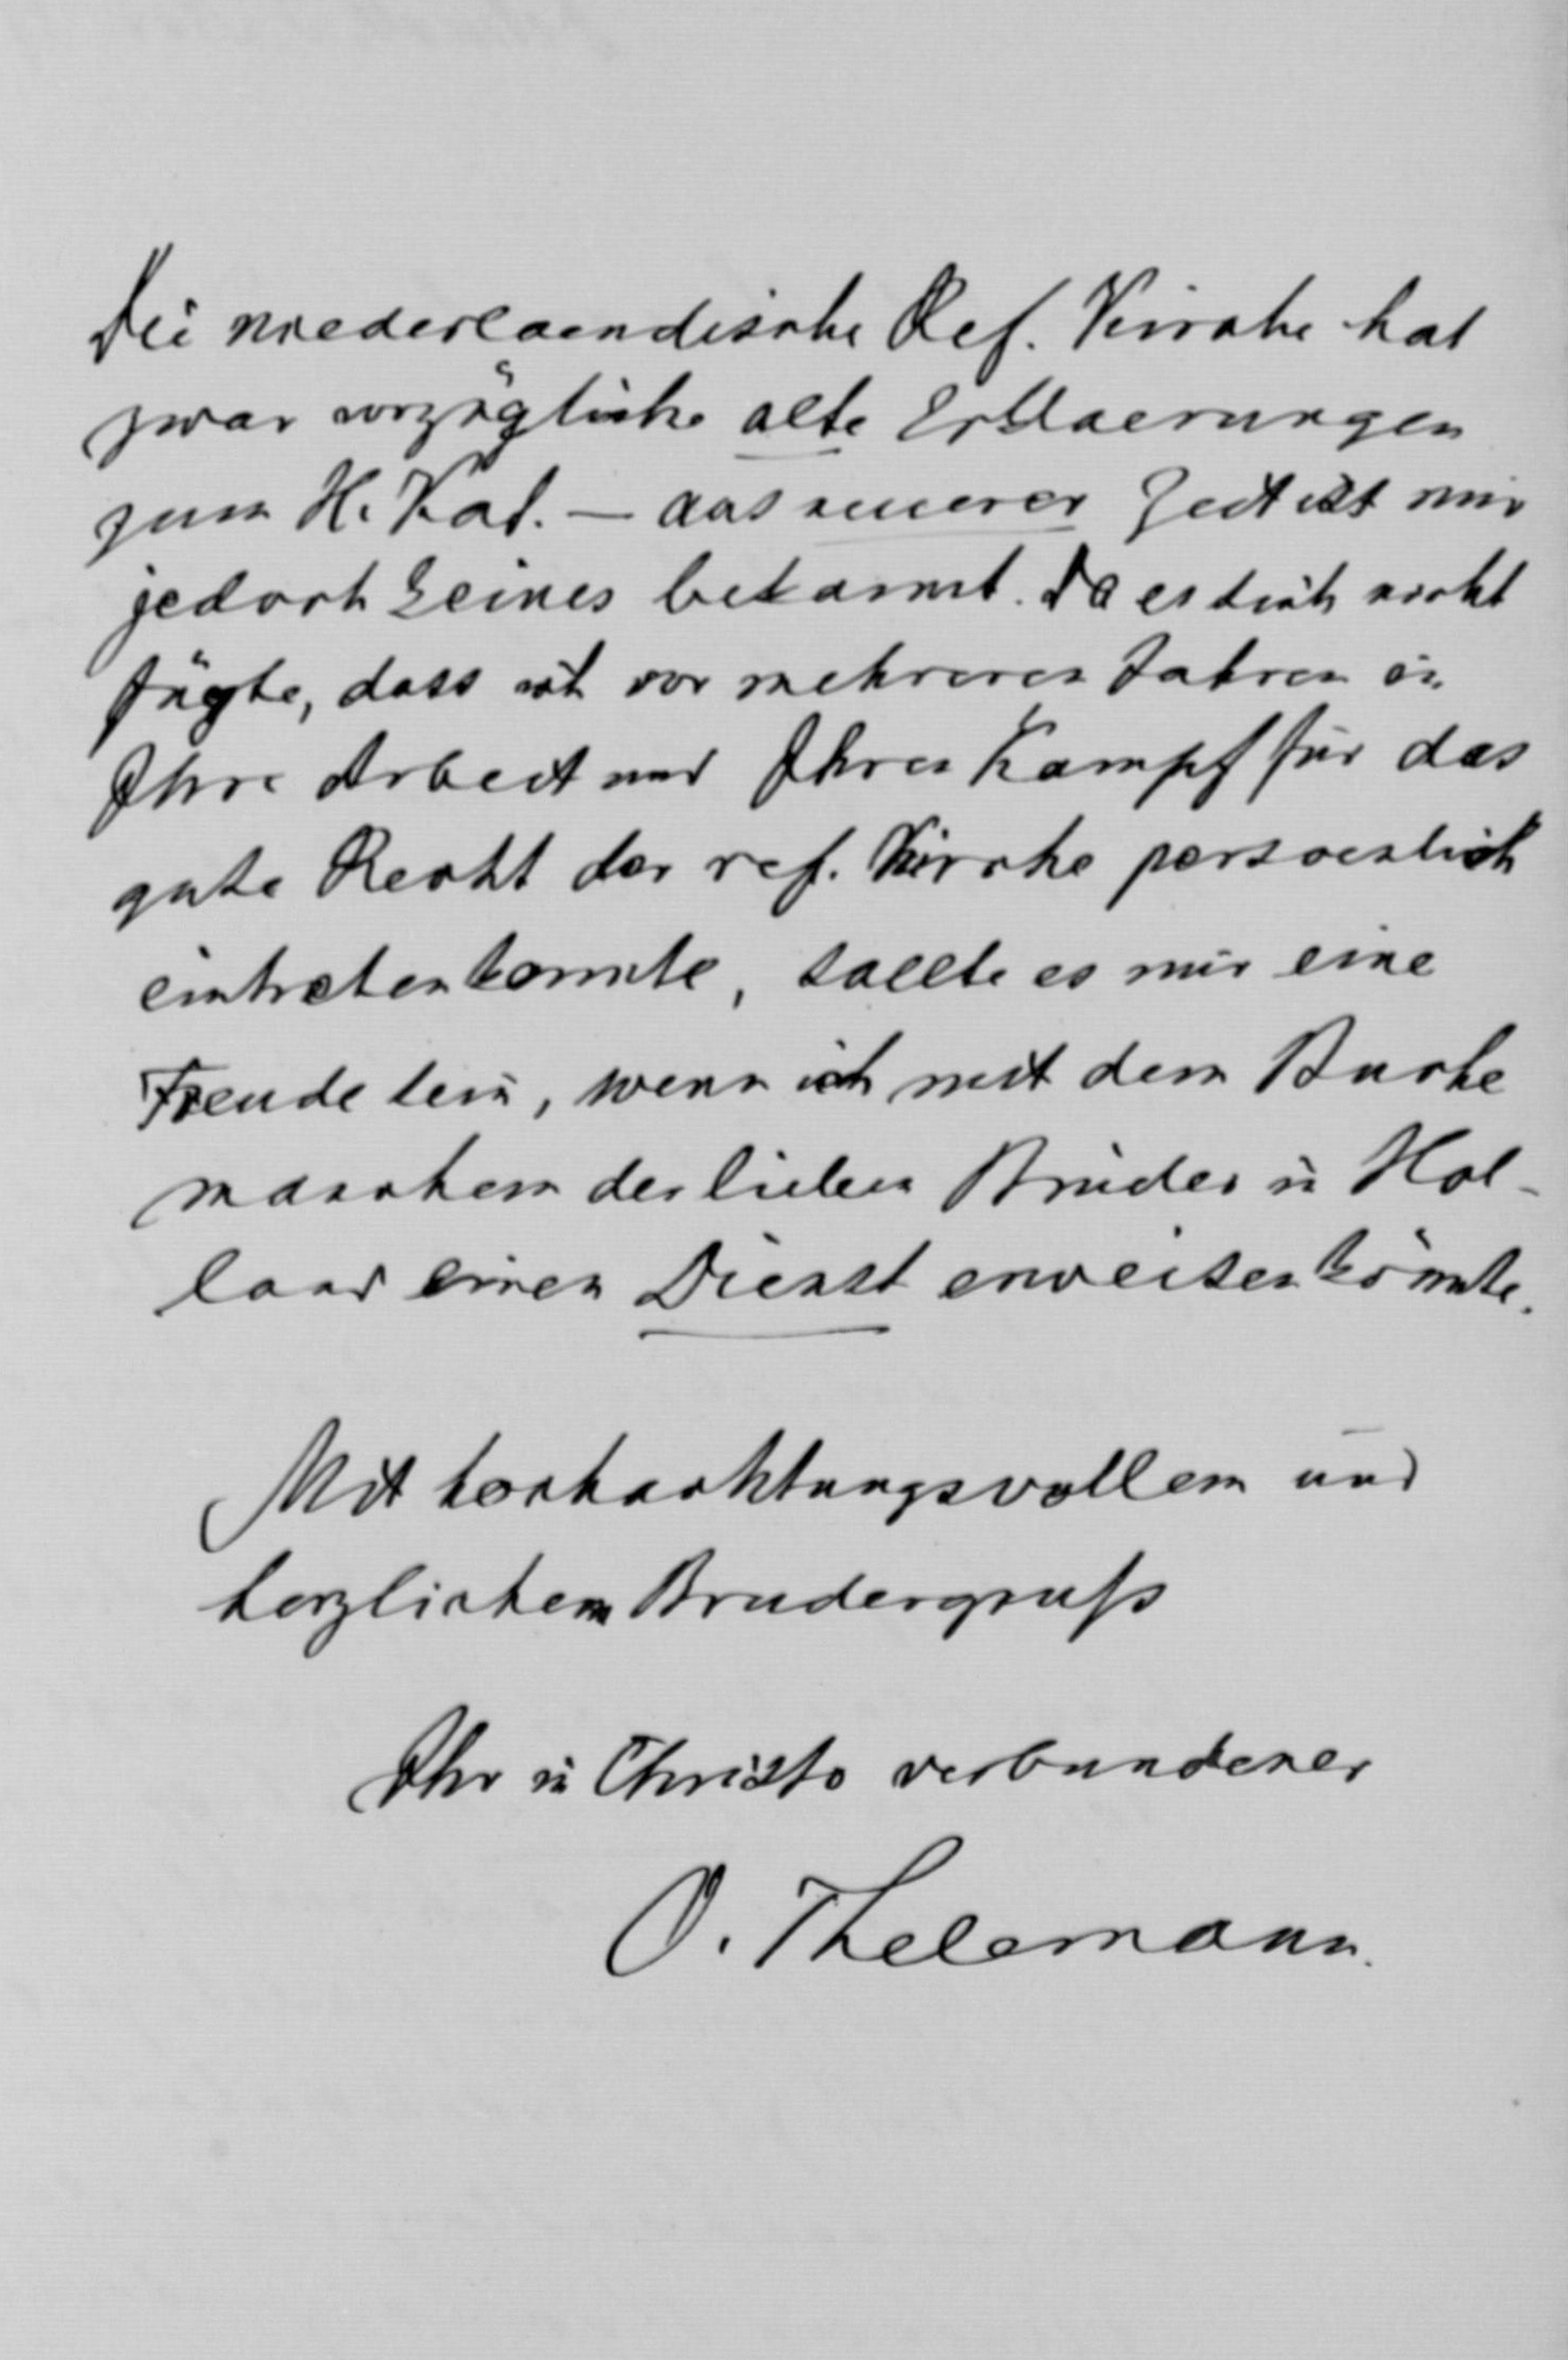 Die niederlaendische Ref. Kirche hat
zwar vorzügliche alte Erklaerungen
zum H. Kat. — aus neuerer Zeit ist mir
jedoch keines bekannt. Da es sich nicht
fügte, dass ich vor mehreren Jahren in
Ihre Arbeit und Ihren Kampf für das
gute Recht der ref. Kirche persoenlich
eintreten konnte, sollte es mir eine
Freude sein, wenn ich mit dem Buche
manchem der lieben Brüder in Hol-
land einen Dienst erweisen könnte.
Mit hochachtungsvollem und
herzlichem Brudergruß
Ihr in Christo verbundener
O. Thelemann.